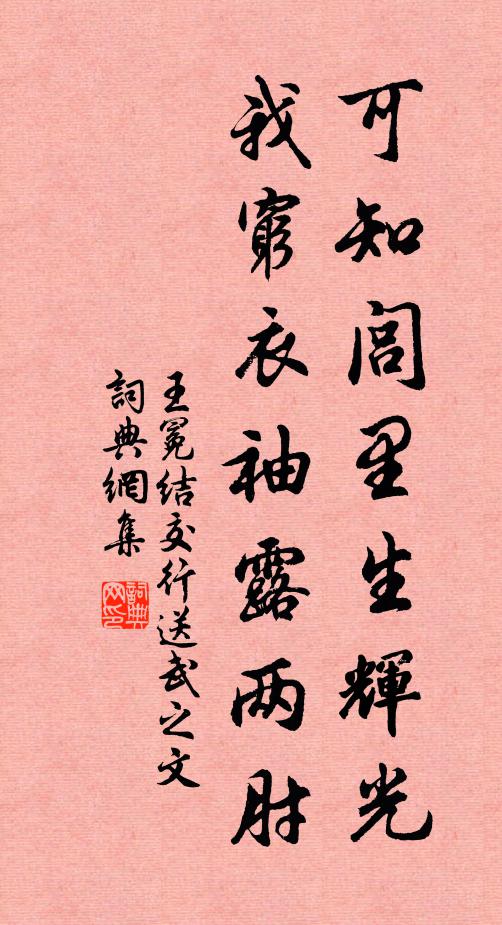 可知閭里生輝光
我窮衣袖露两肘
王冕結交行送武之文
詞典網集
詞典
网印